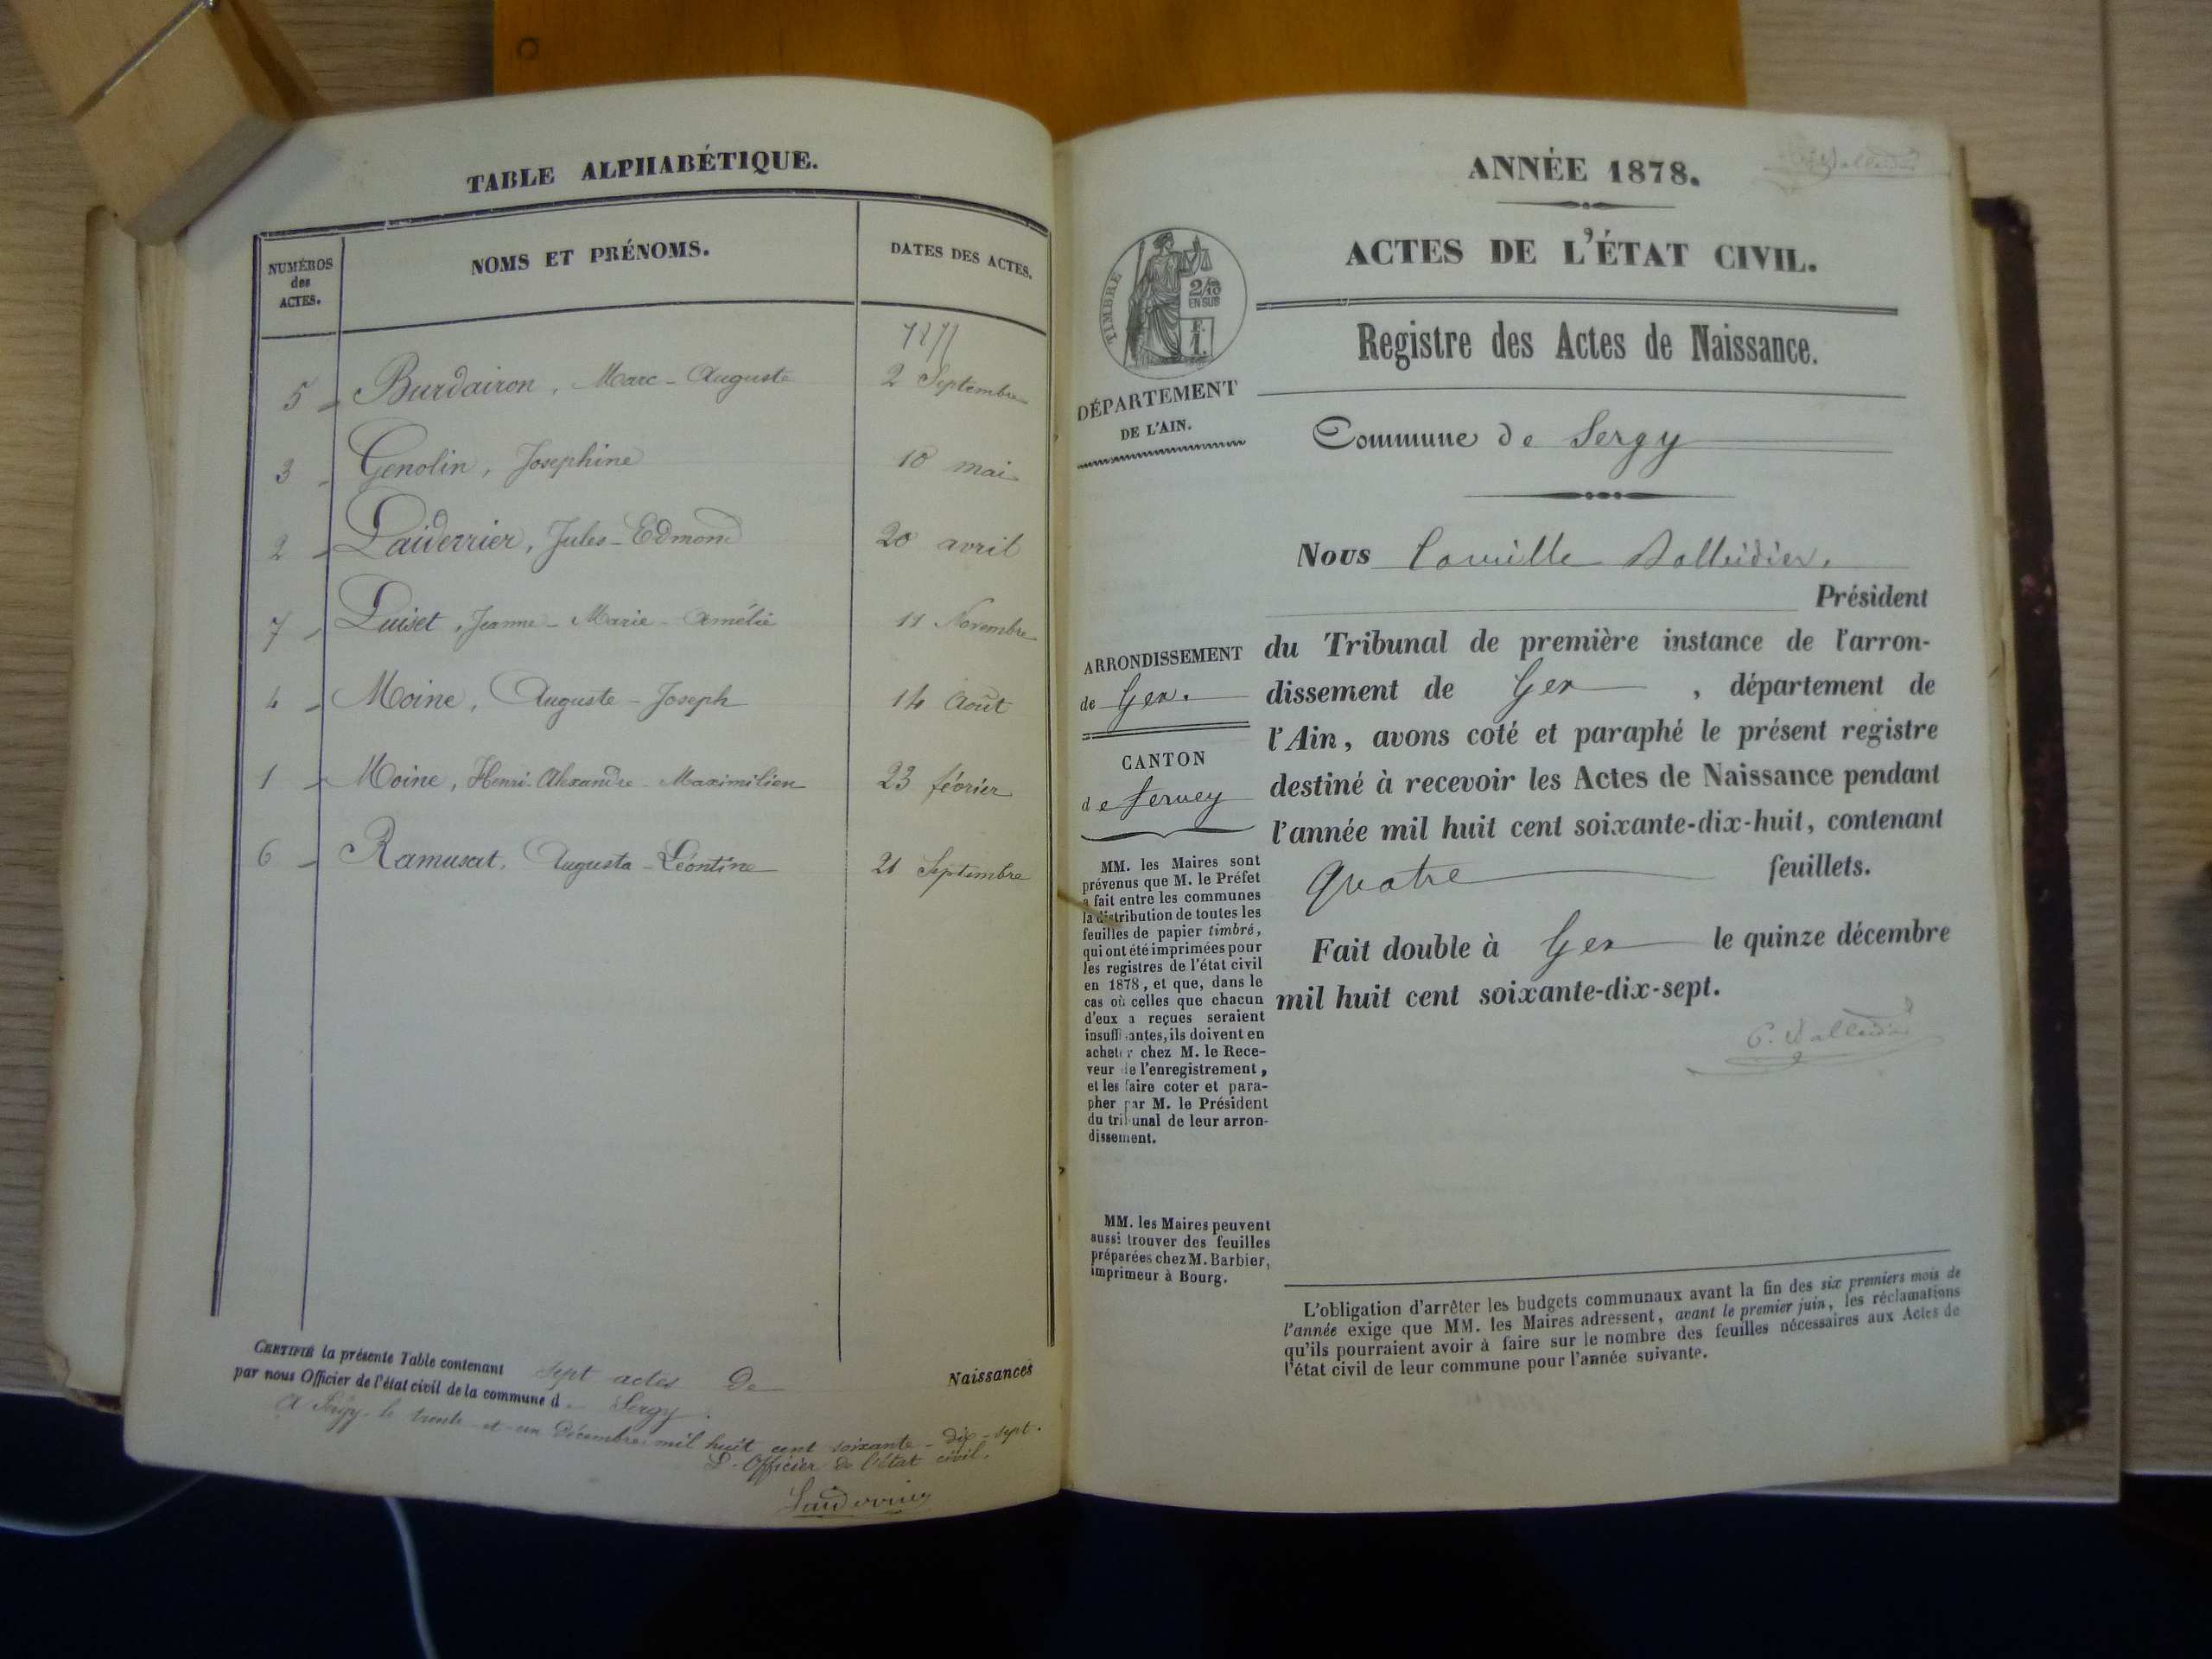 TABLE ALPHABÉTIQUE.
NUMÉROS
des
ACTES.
NOMS ET PRÉNOMS.
DATES DES ACTES.
1877
5 Burdairon, Marc-Auguste 2 Septembre
3 Genolin, Josephine 18 mai
2 Laiderrier, Jules-Edmond 20 avril
7 Luiset, Jeanne-Marie-Amélie 11 Novembre
4 Moine, Auguste-Joseph 14 Août
1 Moine, Henri-Alexandre-Maximilien 23 février
6 Ramusat, Augusta-Léontine 21 Septembre
CERTIFIÉ la présente Table contenant sept actes de Naissances
par nous Officier de l'état civil de la commune d Sergy.
A Sergy, le trente-et-un Décembre mil huit cent soixante-dix-sept.
L'Officier de l'état civil.
ANNÉE 1878.
ACTES DE L'ÉTAT CIVIL.
TIMBRE
2/10
EN SUS
Registre des Actes de Naissance.
DÉPARTEMENT
DE L'AIN.
Commune de Sergy
Nous Camille
Président
ARRONDISSEMENT
de Gex.
CANTON
de Ferney
du Tribunal de première instance de l'arron-
dissement de Gex, département de
l'Ain, avons coté et paraphé le présent registre
destiné à recevoir les Actes de Naissance pendant
l'année mil huit cent soixante-dix-huit, contenant
quatre feuillets.
Fait double à Gex le quinze décembre
mil huit cent soixante-dix-sept.
MM. les Maires sont
prévenus que M. le Préfet
a fait entre les communes
la distribution de toutes les
feuilles de papier timbré,
qui ont été imprimées pour
les registres de l'état civil
en 1878, et que, dans le
cas où celles que chacun
d'eux a reçues seraient
insuffisantes, ils doivent en
acheter chez M. le Rece-
veur de l'enregistrement,
et les faire coter et para-
pher par M. le Président
du tribunal de leur arron-
dissement.
MM. les Maires peuvent
aussi trouver des feuilles
préparées chez M. Barbier,
imprimeur à Bourg.
L'obligation d'arrêter les budgets communaux avant la fin des six premiers mois de
l'année exige que MM. les Maires adressent, avant le premier juin, les réclamations
qu'ils pourraient avoir à faire sur le nombre des feuilles nécessaires aux Actes de
l'état civil de leur commune pour l'année suivante.